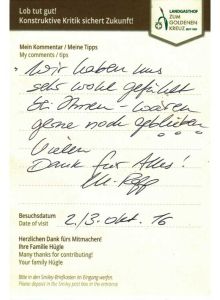 Lob tut gut!
Konstruktive Kritik sichert Zukunft!
LANDGASTHOF
ZUM
GOLDENEN
KREUZ
Mein Kommentar / Meine Tipps
My comments / tips
Wir haben uns
sehr wohl gefühlt
bei Ihnen - wären
gerne noch geblieben
Vielen
Dank für Alles!
Besuchsdatum
Date of visit
2./3. Okt. 16
Herzlichen Dank fürs Mitmachen!
Ihre Familie Hügle
Many thanks for contributing!
Your family Hügle
Bitte in den Smiley-Briefkasten im Eingang werfen.
Please deposit in the Smiley post box in the entrance